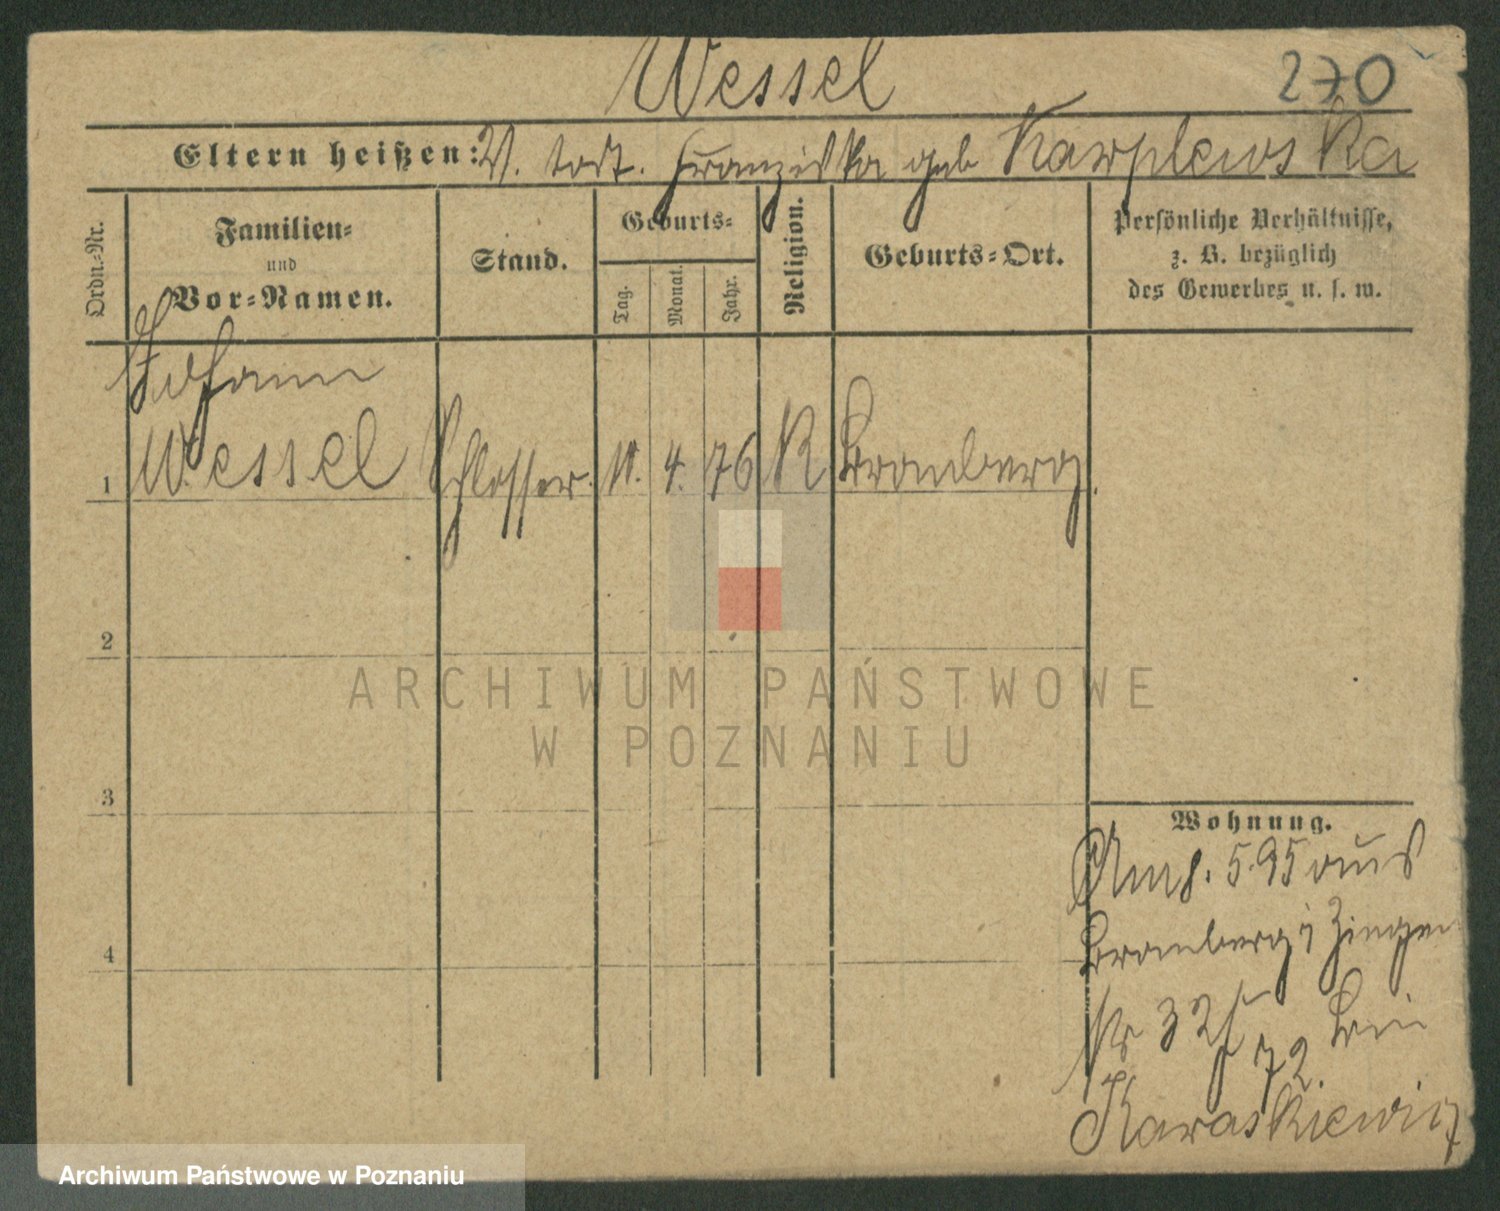 Wessel
270
Eltern heißen: V. todt. Franziska geb Karplewska
Ordn.-Nr.
Familien-
und
Vor-Namen.
Stand.
Geburts-
Tag.
Monat.
Jahr.
Religion.
Geburts-Ort.
Persönliche Verhältnisse,
z. B. bezüglich
des Gewerbes u. s. w.
Johann
1 Wessel Schlosser. 11. 4. 76 K Bromberg.
2
3
4
Wohnung.
5.95 aus
Bromberg
Nr 32
72. bei
Karaskiewicz
ARCHIWUM PAŃSTWOWE
W POZNANIU
Archiwum Państwowe w Poznaniu